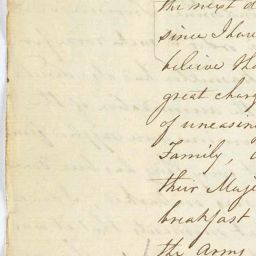 the next d
since I hav
believe tha
great char
of uneasin
Family,
their Maje
breakfast
the Arms